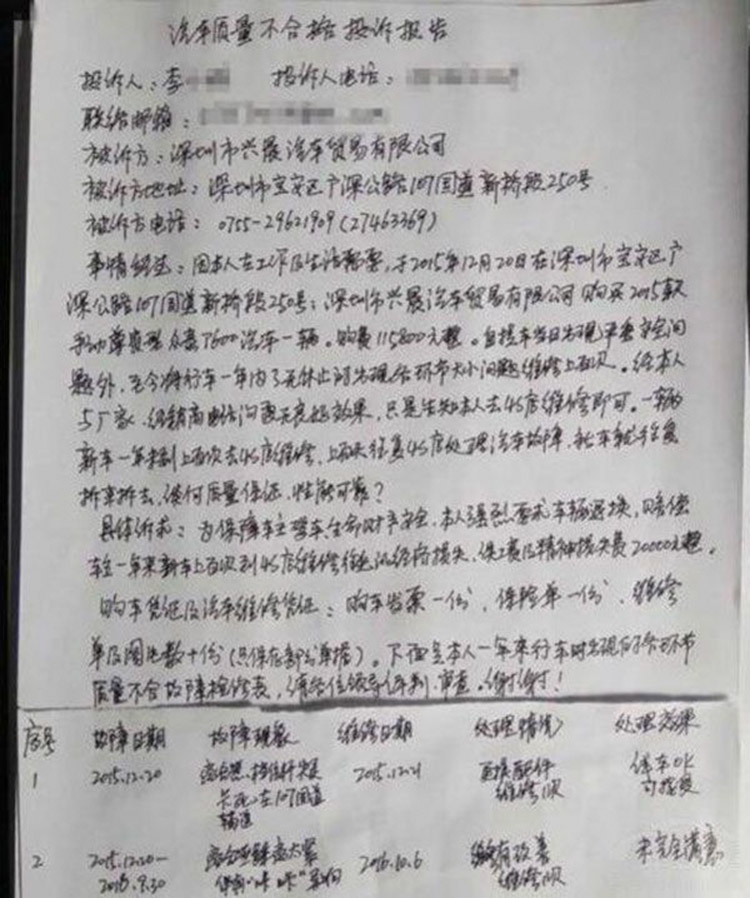 汽车质量不合格投诉报告
投诉人：李 投诉人电话：
联络邮箱：
被诉方：深圳市兴晨汽车贸易有限公司
被诉方地址：深圳市宝安区广深公路107国道新桥段250号
被诉方电话：0755-29621909(27463369)
事情经过：因本人在工作及生活需要，于2015年12月20日在深圳市宝安区广
深公路107国道新桥段250号：深圳市兴晨汽车贸易有限公司购买2015款
手动尊贵型众泰T600汽车一辆。购费115800元整。自提车当日出现严重安全问
题外，至今将行车一年内了无休止的出现各环节大小问题维修上百次。经本人
与厂家、经销商电话沟通无良起效果，只是告知本人去4S店维修即可。一辆
新车一年未到上百次去4S店维修，上百次往复4S店处理汽车故障，新车往复
拆来拆去，使何质量保证，性能可靠？
具体诉求：为保障车主驾车生命财产安全，本人强烈要求车辆退换，赔偿
车主一年来新车上百次到4S店维修往返的经济损失、误工费及精神损失费20000元整。
购车凭证及汽车维修凭证：购车发票一份、保险单一份、维修
单及图片数十份（只保存部分单据）。下面是本人一年来行车时出现的各环节
质量不合故障检修表，请各位领导评判、审查。谢谢！
序号 故障日期 故障现象 维修日期 处理情况 处理效果
1 2015.12.20 离合器、挡位杆突发 2015.12.21 更换配件 停车OK
卡死，在107国道 维修1次 可接受
辅道
2 2015.12.20- 离合 2016.10.6 有改善 未完全满意
2016.9.30 伴有“咔咔”异响 维修1次